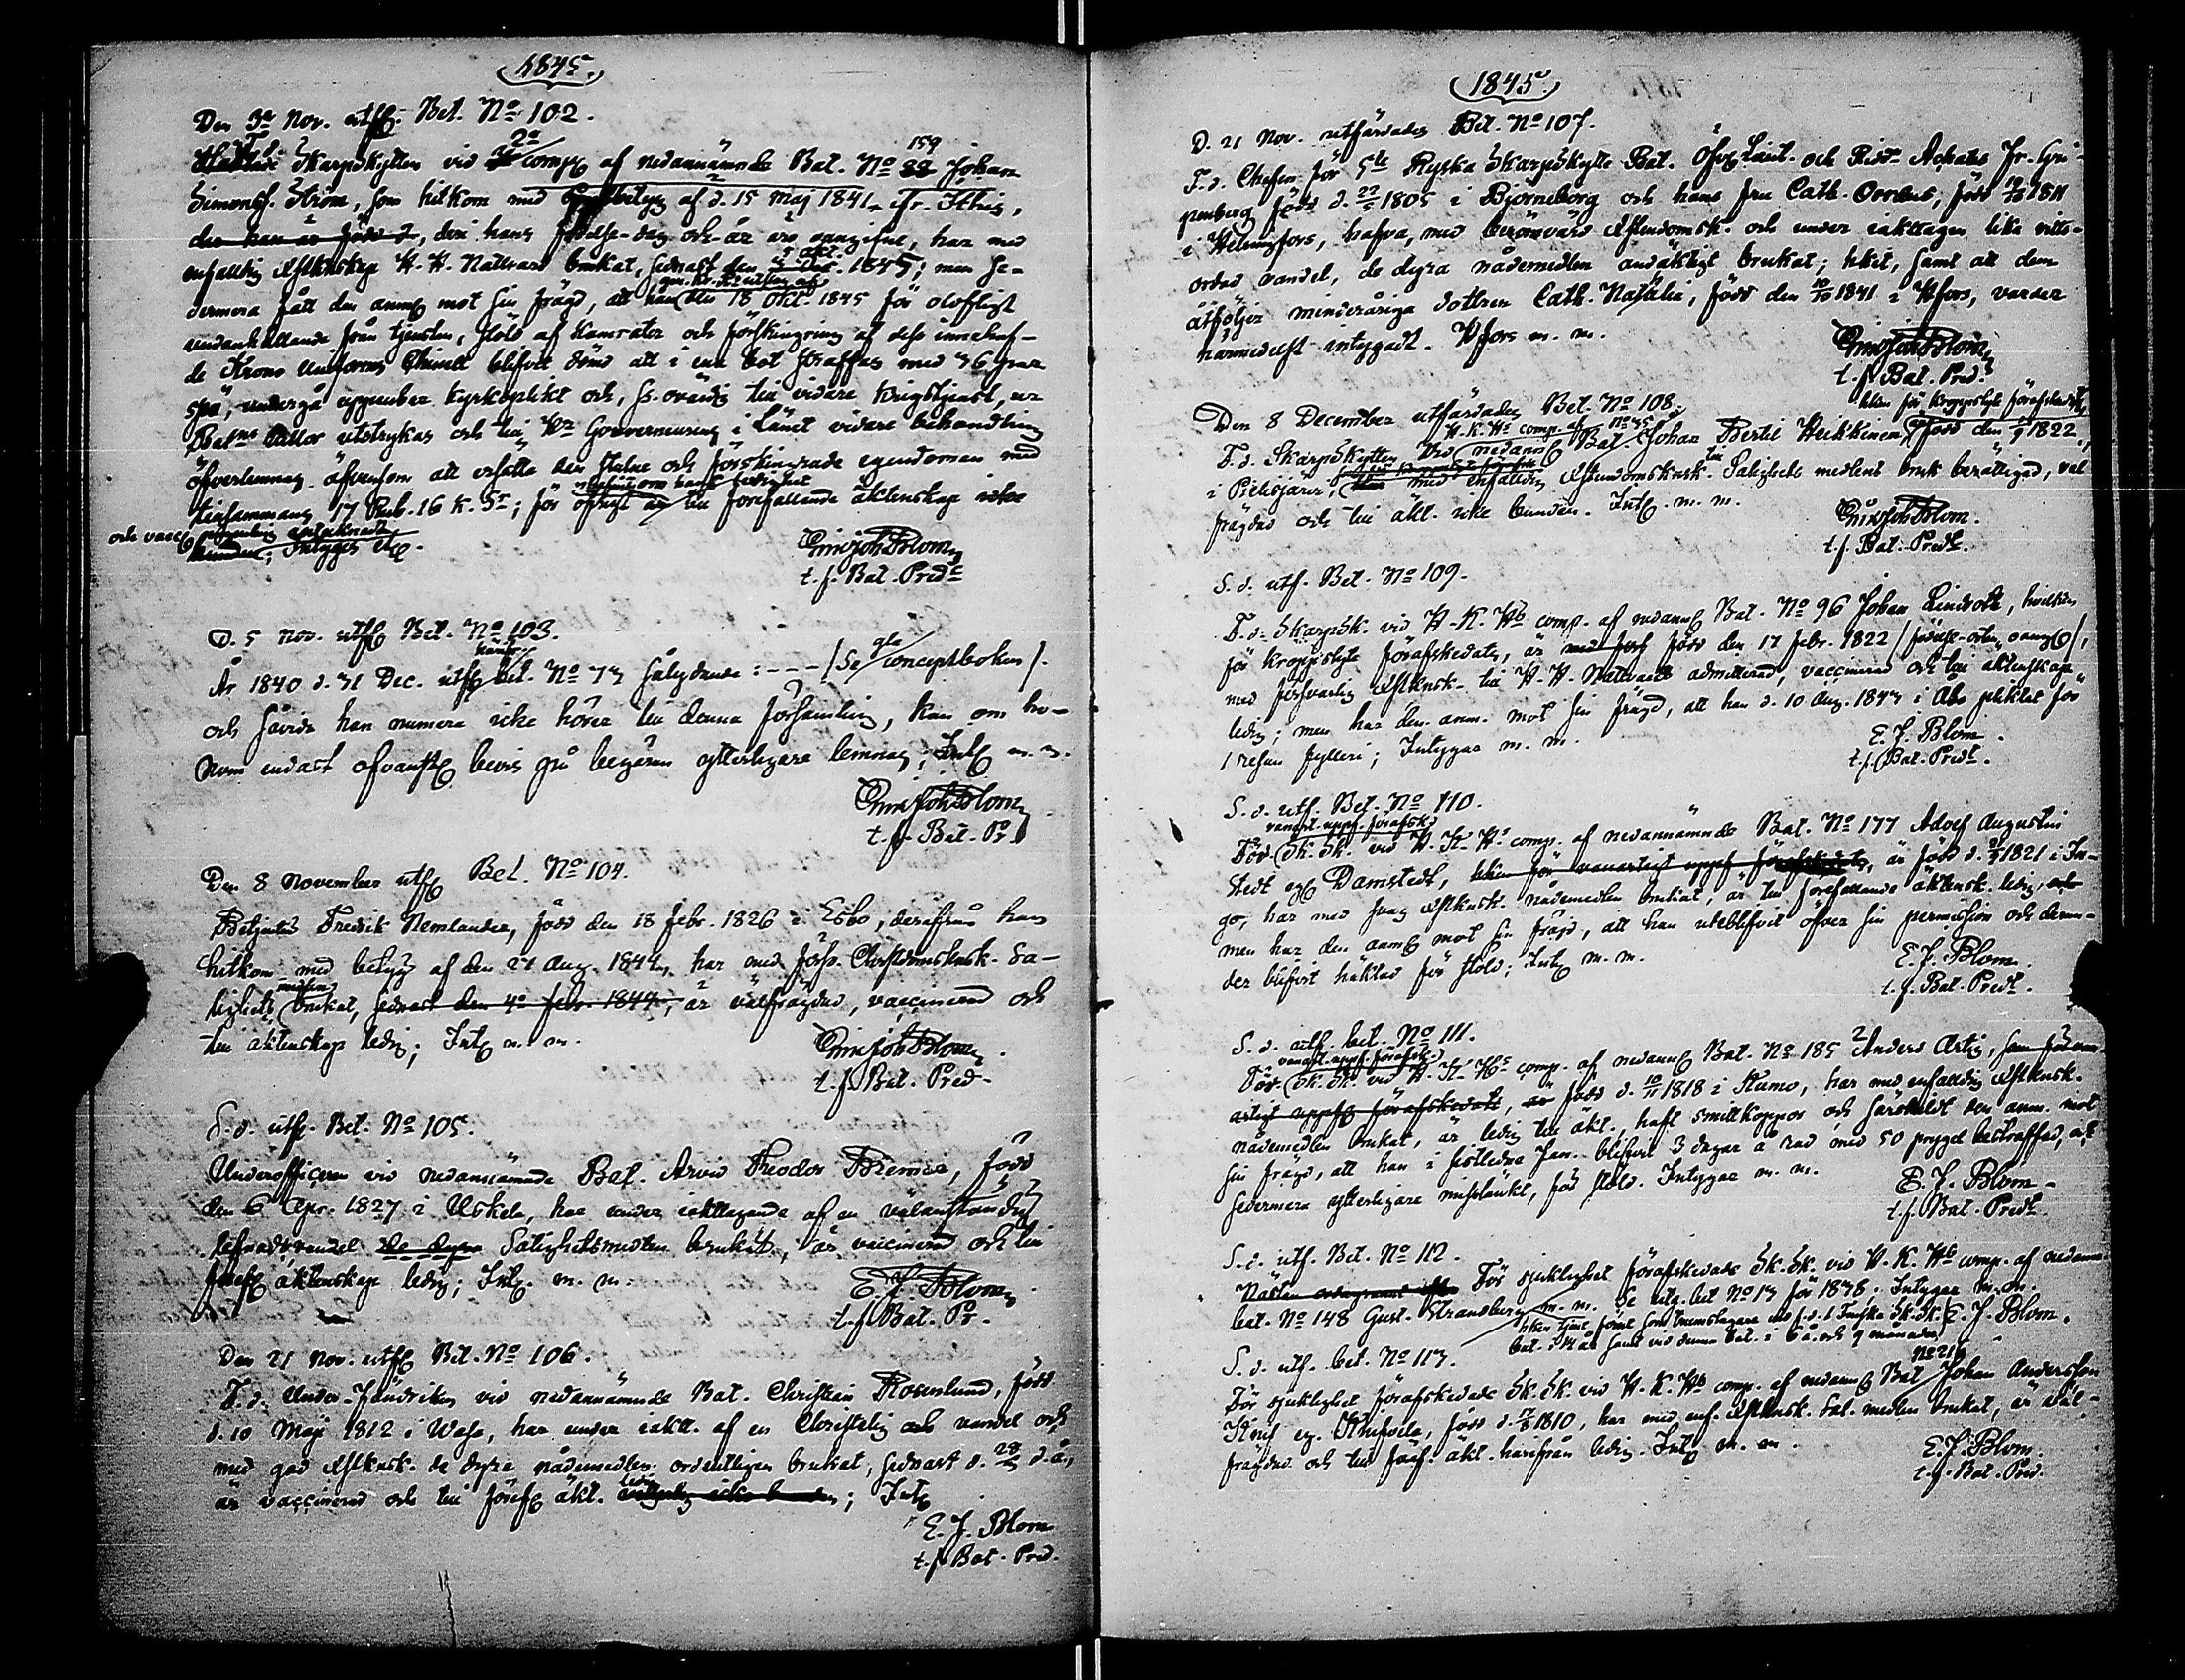 1845.
Den 3e Nov. utf. Bet. No 102.
F. d. Skarpskytten vid 2a comp. af nedannämnde Bat. No 159 Johan
Simonss. Ström, som hitkom med betyg af d. 15 Maj 1841, fr. Sthus,
der han är född d, deri hans födelse-dag och år äro oangifne, har med
enfaldig Xstknskp H. H. Nattvard brukat, sednast den 5 Okt. 1845; men se-
dermera fått den anm. mot sin frägd, att han den 18 Okt. 1845 för olofligt
undanhållande från tjensten, stöld af Kamrater och förskingring af dess innehaf-
de Krono uniforms blifvit dömd att i ett bot straffas med 36 par
spö, undergå uppenbar kyrkoplikt och, ss. ovärdig till vidare krigstjenst, ur
Batns rullor utstrykas och till Kr Gouverneuren i Länet vidare behandling
öfverlemnas äfvensom att ersätta den stulna och förskingrade egendomen med
tillsammans 17 Rub. 16 K. Sr; för öfrigt till förefallande äktenskap icke
och vacc.
bunden; Intygas etc.
Eric Joh Blom
t. f. Bat. Predt
D. 5 Nov. utf. Bet. No 103.
År 1840 d. 31 Dec. utf. bet. No 73 sålydande: - - - (Se gla Conceptboken).
och såvida han numera icke hörer till denna församling, kan om ho-
nom endast ofvanst. bevis på begäran ytterligare lemnas; Int. m. m.
Eric Joh Blom
t. f. Bat. Pr
Den 8 November utf. Bet. No 104.
Betjenten Fredrik Nemlander, född den 18 Febr. 1826 i Esbo, derifrån han
hitkom med betyg af den 24 Aug. 1844, har med förs. Christdomskunsk. Sa-
lighets medlen brukat, sednast den 4e Febr. 1844, är välfrägdad, vaccinerad och
till äktenskap ledig; Int. m. m.
Eric Joh Blom
t. f. Bat. Pred.
S. d. utf. Bet. No 105.
Underofficeren vid nedannämnde Bat. Arvid Theodor Bremer, född
den 6 Apr. 1827 i Uskela, har under iakttagande af en välanständig
lefnadsvandel de dyra Salighetsmedlen brukat, är vaccinerad och till
föref. äktenskap ledig; Int. m. m.
E. J. Blom
t. f. Bat. Pr.
Den 21 Nov. utf. Bet. No 106.
F. d. Under-Fändriken vid nedannämnde Bat. Christian Rosenlund, född
d. 10 Maji 1812 i Wasa, har under iaktt. af en Christelig vandel och
med god Xstknsk. de dyra nådemedlen ordentligen brukat, sednast d. 28/5 d. å.,
är vaccinerad och till föref. äkt. ledig; Int.
E. J. Blom
t. f. Bat. Pred.
1845.
D. 21 Nov. utfärdades Bet. No 107.
F. d. Chefen för 5te Ryska Skarpskytte Bat. Öfv. Löjt. och Ridd. Achates Fr. Gri-
penberg född d. 22/5 1805 i Björneborg och hans fru Cath. född 1811
i Helsingfors, hafva, med berömvärd Xstendomsk. och under iakttagen lika vitts-
ordad vandel, de dyra nådemedlen andäktigt brukat; hket, samt att dem
åtföljer minderåriga dottren Cath. Natalia, född den 10/10 1841 i Hfors, varder
härmedelst intygadt. Hfors m. m.
Eric Joh Blom
t. f. Bat. Pred.
Den 8 December utfärdades Bet. No 108.
hken för kroppslyte förafskedats
F. d. Skarpskytten vid H. K. Hs comp. af nedann. Bat. No 75 Johan Bertil Heikkinen, född den 1822
i Pielisjärvi, med enfaldig Xstendomskunsk. till Salighets medlens bruk berättigad, väl
frägdad och till äkt. icke bunden. Int. m. m.
Eric Joh Blom.
t. f. Bat. Predt.
S. d. utf. Bet. No 109.
F. d. Skarpsk. vid H. K. Hs comp. af nedann. Bat. No 96 Johan Lindroth, hvilken
för kroppslyte förafskedats, är född den 17 Febr. 1822 (födelse-orten oangif.),
med försvarlig Xstknsk. till H. H. Nattvard admitterad, vaccinerad och till äktenskap
ledig; men har den anm. mot sin frägd, att han d. 10 Aug. 1843 i Åbo pliktat för
1 resan fylleri; Intygar m. m.
E. J. Blom.
t. f. Bat. Predt.
S. d. utf. Bet. No 110.
vanart. uppf. förafsk.
För Sk. Sk. vid H. K. Hs comp. af nedannämnde Bat. No 177 Adolf Augustin
Stedt eg. Damstedt, hken för vanartigt uppf. förafskedats, är född d. 1821 i In-
go, har med svag Xstknsk. nådemedlen brukat, är till förefallande äktensk. ledig,
men har den anm. mot sin frägd, att han uteblifvit öfver sin permission och derun-
der blifvit häktad för stöld; Int. m. m.
E. J. Blom.
t. f. Bat. Predt.
S. d. utf. bet. No 111.
vanart. uppf. förafsk.
För Sk. Sk. vid H. K. Hs comp. af nedann. Bat. No 185 Anders Artig, som för van-
artigt uppf. förafskedats, är född d. 10/11 1818 i Kumo, har med enfaldig Xstknsk.
nådemedlen brukat, är ledig till äkt., haft smittkoppor och särskildt den anm. mot
sin frägd, att han i sistledne Jan. blifvit 3 dagar å rad med 50 prygel bestraffad, och
sedermera ytterligare misstänkt, för stöld. Intygar m. m.
E. J. Blom.
t. f. Bat. Predt.
S. d. utf. Bet. No 112.
För sjuklighet förafskedade Sk. Sk. vid H. K. Hs comp. af nedann.
bat. No 148 Gust. Strandberg m. m. Se utg. bet No 13 för 1838. Intygar m. m.
hken tjent först som trumslagare vid f. d. 1 Finska Sk. Sk. E. J. Blom.
bat. i 14 år samt vid denna bat. i 6 år och 9 månader
S. d. utf. bet. No 113.
För sjuklighet förafskedade Sk. Sk. vid H. K. Hs comp. af nedann. Bat No 216 Johan Andersson
född d. 1810, har med enf. Xstknsk. Sal. medlen brukat, är väl-
frägdad och till föref. äkt. härifrån ledig. Int. m. m.
E. J. Blom.
t. f. Bat. Pred.